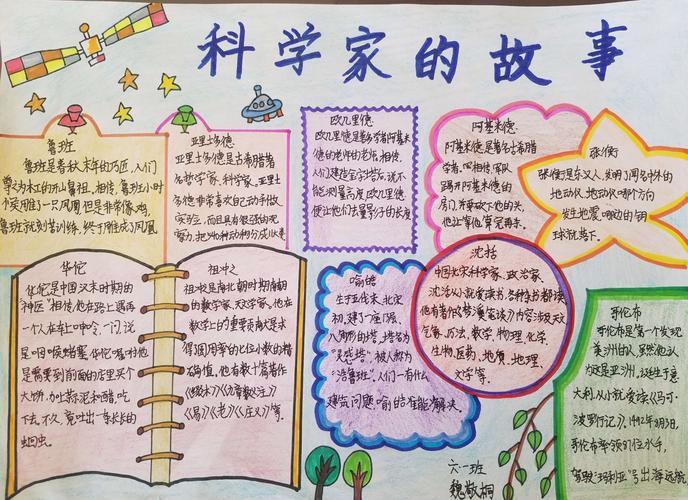 科学家的故事
鲁班
鲁班是春秋末年的巧匠,人们
尊为木工的开山鼻祖,相传,鲁班小时
个奕雕了一只凤凰但是非常像鸡,
鲁班就刻苦训练,终于雕成了凤凰
亚里士多德
亚里士多德是古希腊著
名哲学家、科学家。亚里士
多德非常喜欢自己动手做
实验,而且有很强的观
察力,把540种动物分成纵
欧几里德
欧几里德是数学者阿基米
德的老师的老师,相传,
人们建造金字塔,说不
能测量高度,欧几里德
便让他们去量影子的长度
阿基米德
阿基米德是著名古希腊
学者,
踢开阿基米德的
房门,并要砍下他的头,
他让等他算完再来。
张衡
张衡是东汉人,发明了闻名中外的
地动仪,地动仪哪个方向
发生地震,哪边的铜
球就落下。
华佗
华佗是中国汉末时期的
“神医”相传,他在路上遇到
一个人在车上呻吟,一问,说
是咽喉堵塞,华佗
是需要到前面的店里买个
大饼,加上蒜泥和醋,吃
下去,不久,竟吐出一条长长的
蛔虫。
祖冲之
祖冲之是南北朝时期南朝
的数学家、天文学家,他在
数学上的重要贡献是求
得圆周率的七位小数的精
确值,他有数十篇著作
《缀术》《九章算术注》
《易》《老》《庄义》等。
喻皓
生于五代末,北宋
初,建了一座8层、
八角形的塔,塔名为
“灵感塔”被人称为
“活鲁班”。人们一有什么
建筑问题,喻皓准能解决。
沈括
中国北宋科学家、政治家、
沈括从小就爱读书,各种杂书都读,
他有著作《梦溪笔谈》内容涉及天文
气象、历法、数学、物理、化学
生物、医药、地质、地理、
文学等。
哥伦布
哥伦布是第一个发现
美洲的人,虽然他认
为这是亚洲,这生于意
大利,从小就爱读《马可·
波罗行记》。1492年8月3日,
哥伦布率领87位水手,
驾驶“玛利亚”号出海远航
六一班
魏敬桐